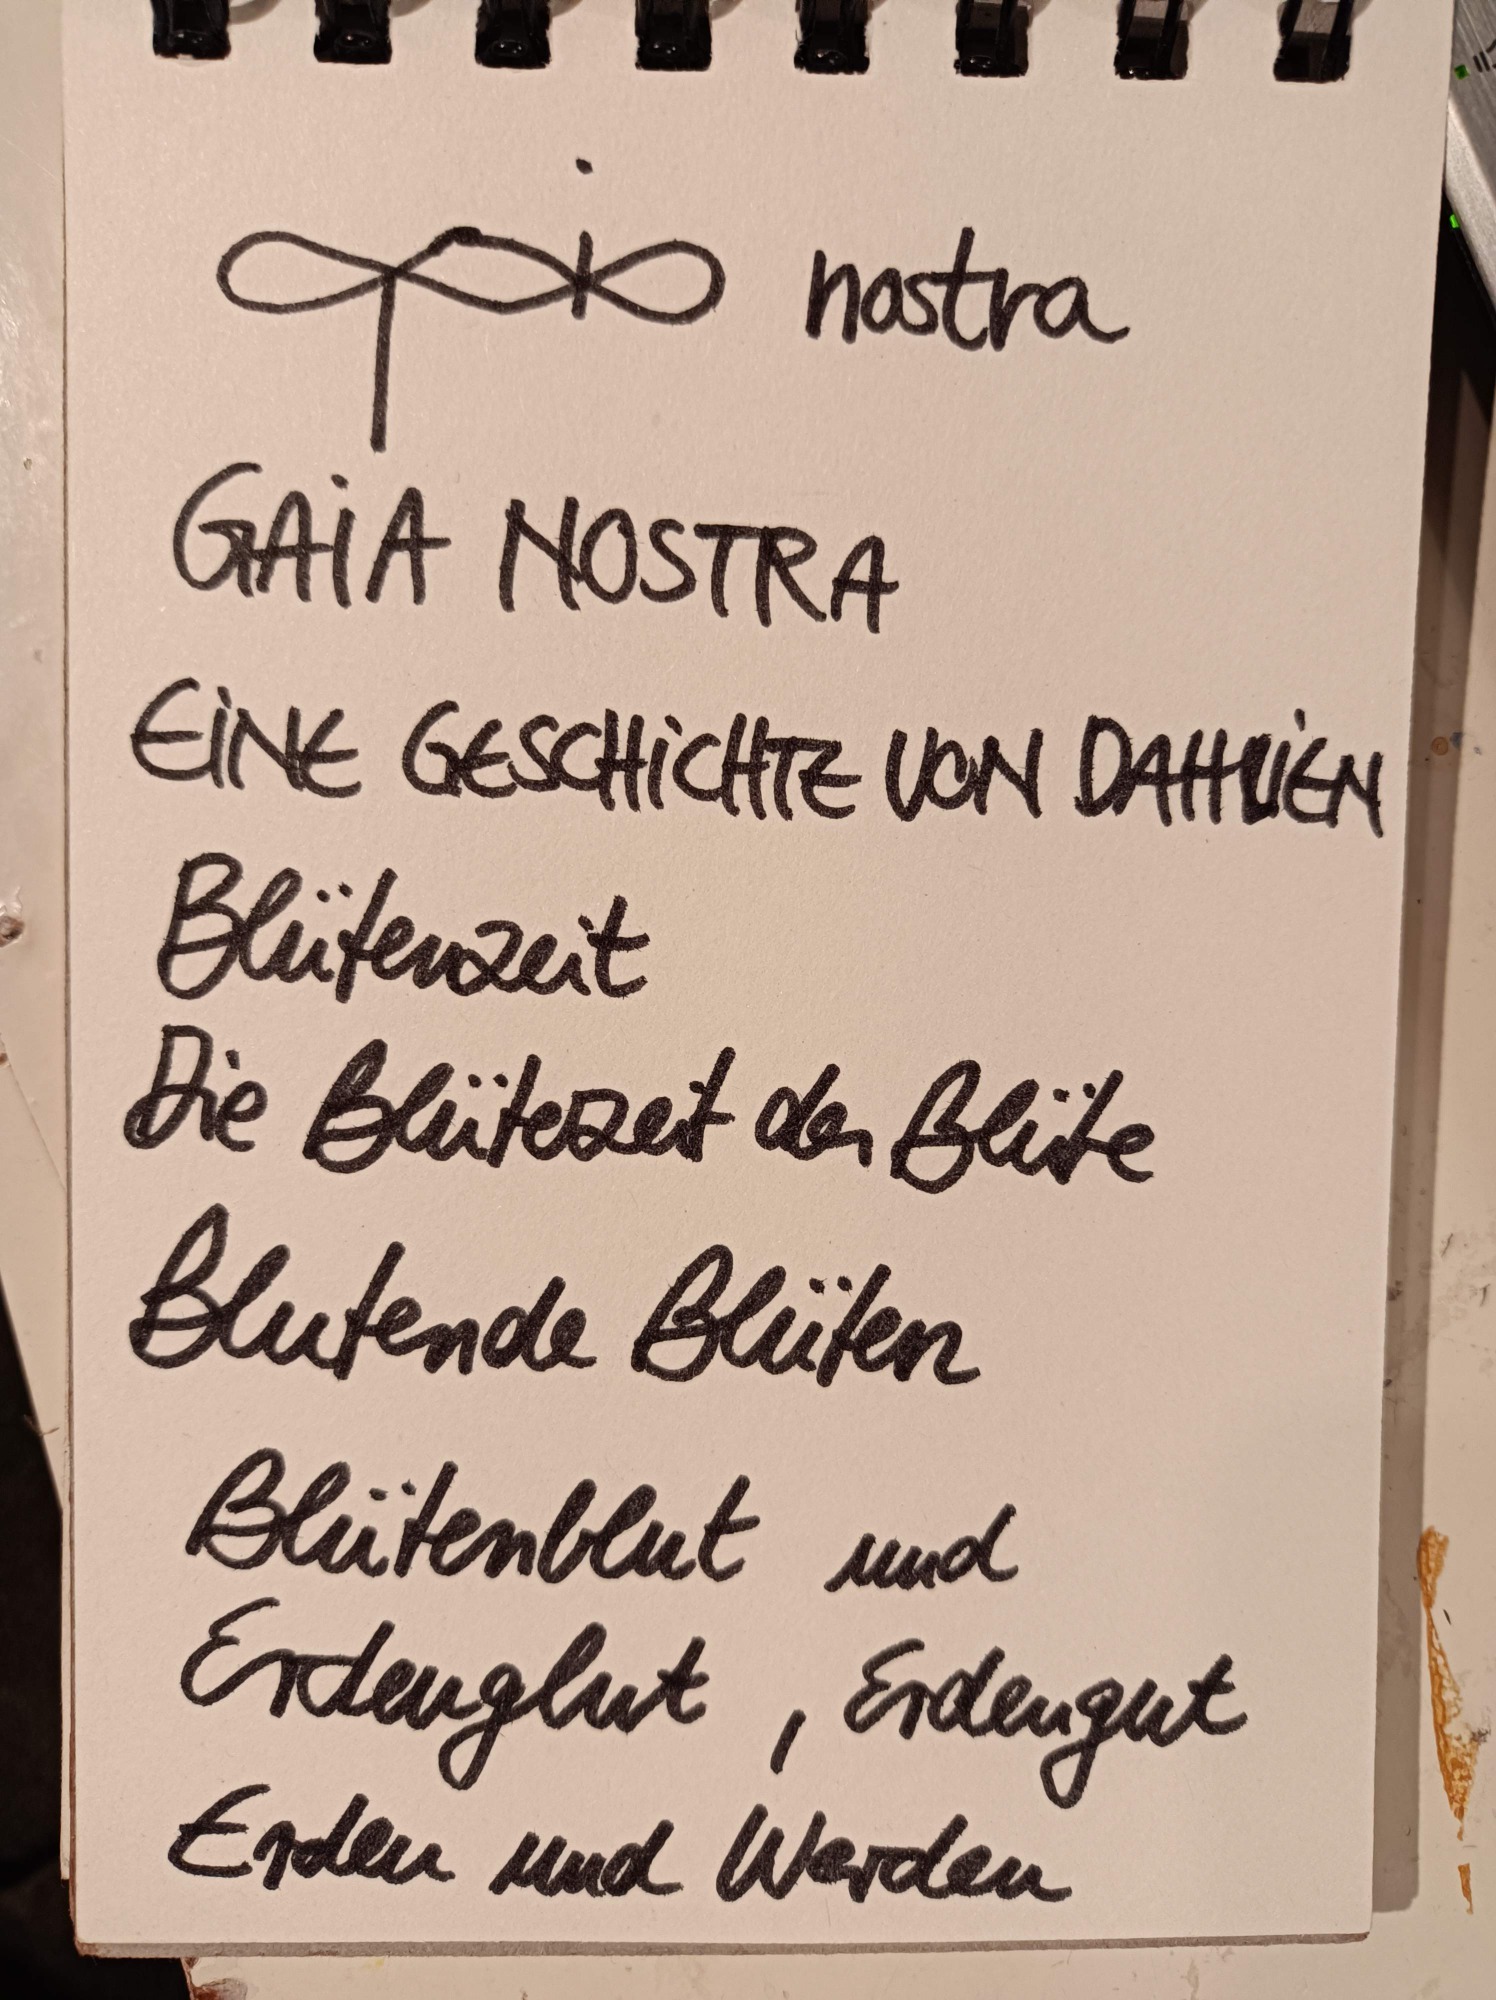 gaia nostra
GAiA NOSTRA
EiNE GESCHiCHTE VON DAHLiEN
Blütenzeit
Die Blütezeit der Blüte
Blutende Blüten
Blütenblut und
Erdenglut , Erdengut
Erden und Werden